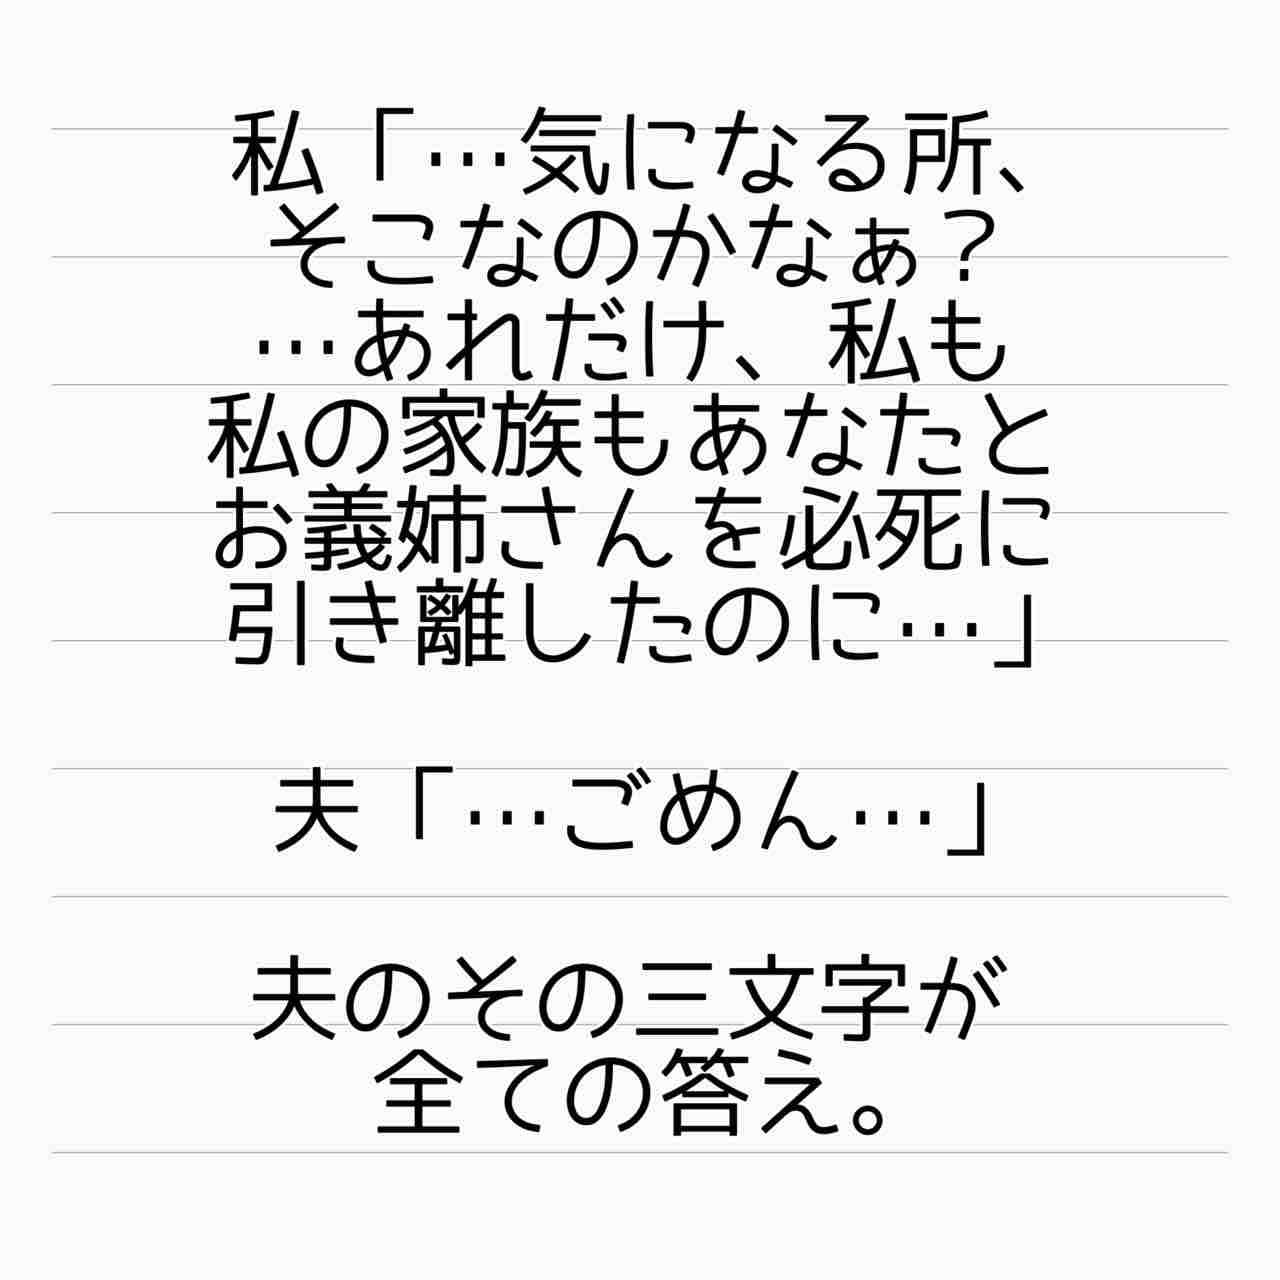 私「…気になる所、
そこなのかなぁ？
…あれだけ、私も
私の家族もあなたと
お義姉さんを必死に
引き離したのに…」
夫「…ごめん…」
夫のその三文字が
全ての答え。